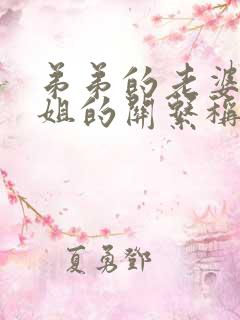 弟弟的老婆
姐的關繫稱
夏勇鄧